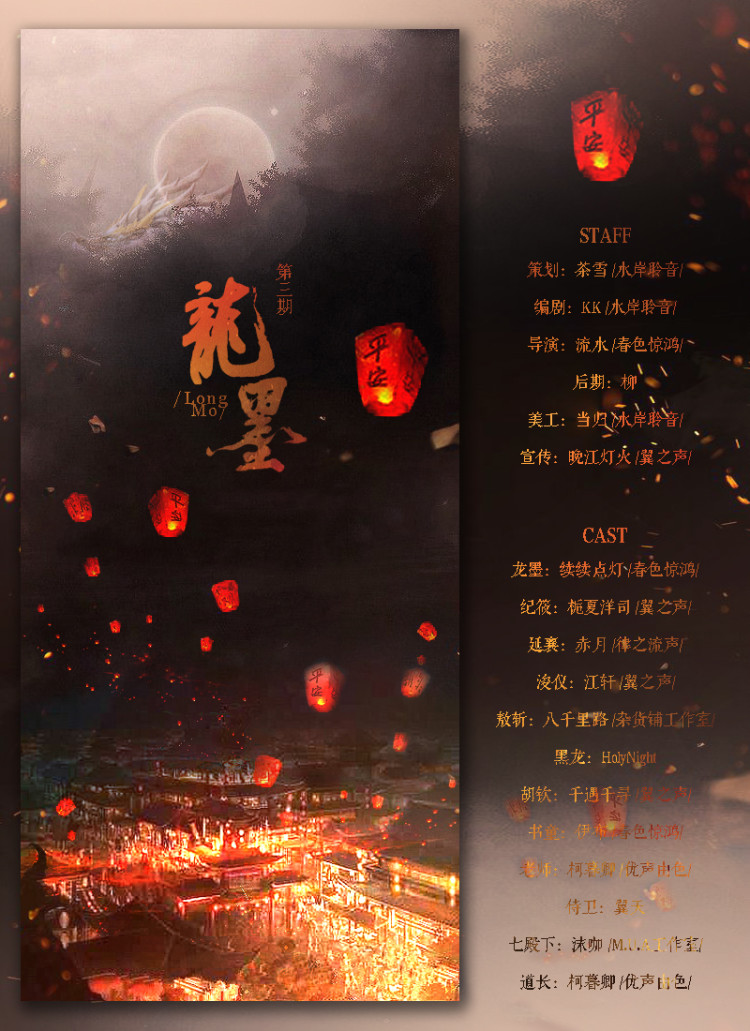 第三期
龍墨
/Long
Mo/
平安
平安
平安
STAFF
策划：茶雪/水岸聆音/
编剧：KK/水岸聆音/
导演：流水/春色惊鸿/
后期：柳
美工：当归/水岸聆音/
宣传：晚江灯火/翼之声/
CAST
龙墨：续续点灯/春色惊鸿/
纪筱：栀夏洋司/翼之声/
延襄：赤月/律之流声/
凌仪：江轩/翼之声/
敖斩：八千里路/杂货铺工作室/
黑龙：HolyNight
胡钦：千遇千寻/翼之声/
书童：伊/春色惊鸿/
柯暮卿/优声由色/
侍卫：翼天
七殿下：沫咖/工作室/
道长：柯暮卿/优声由色/